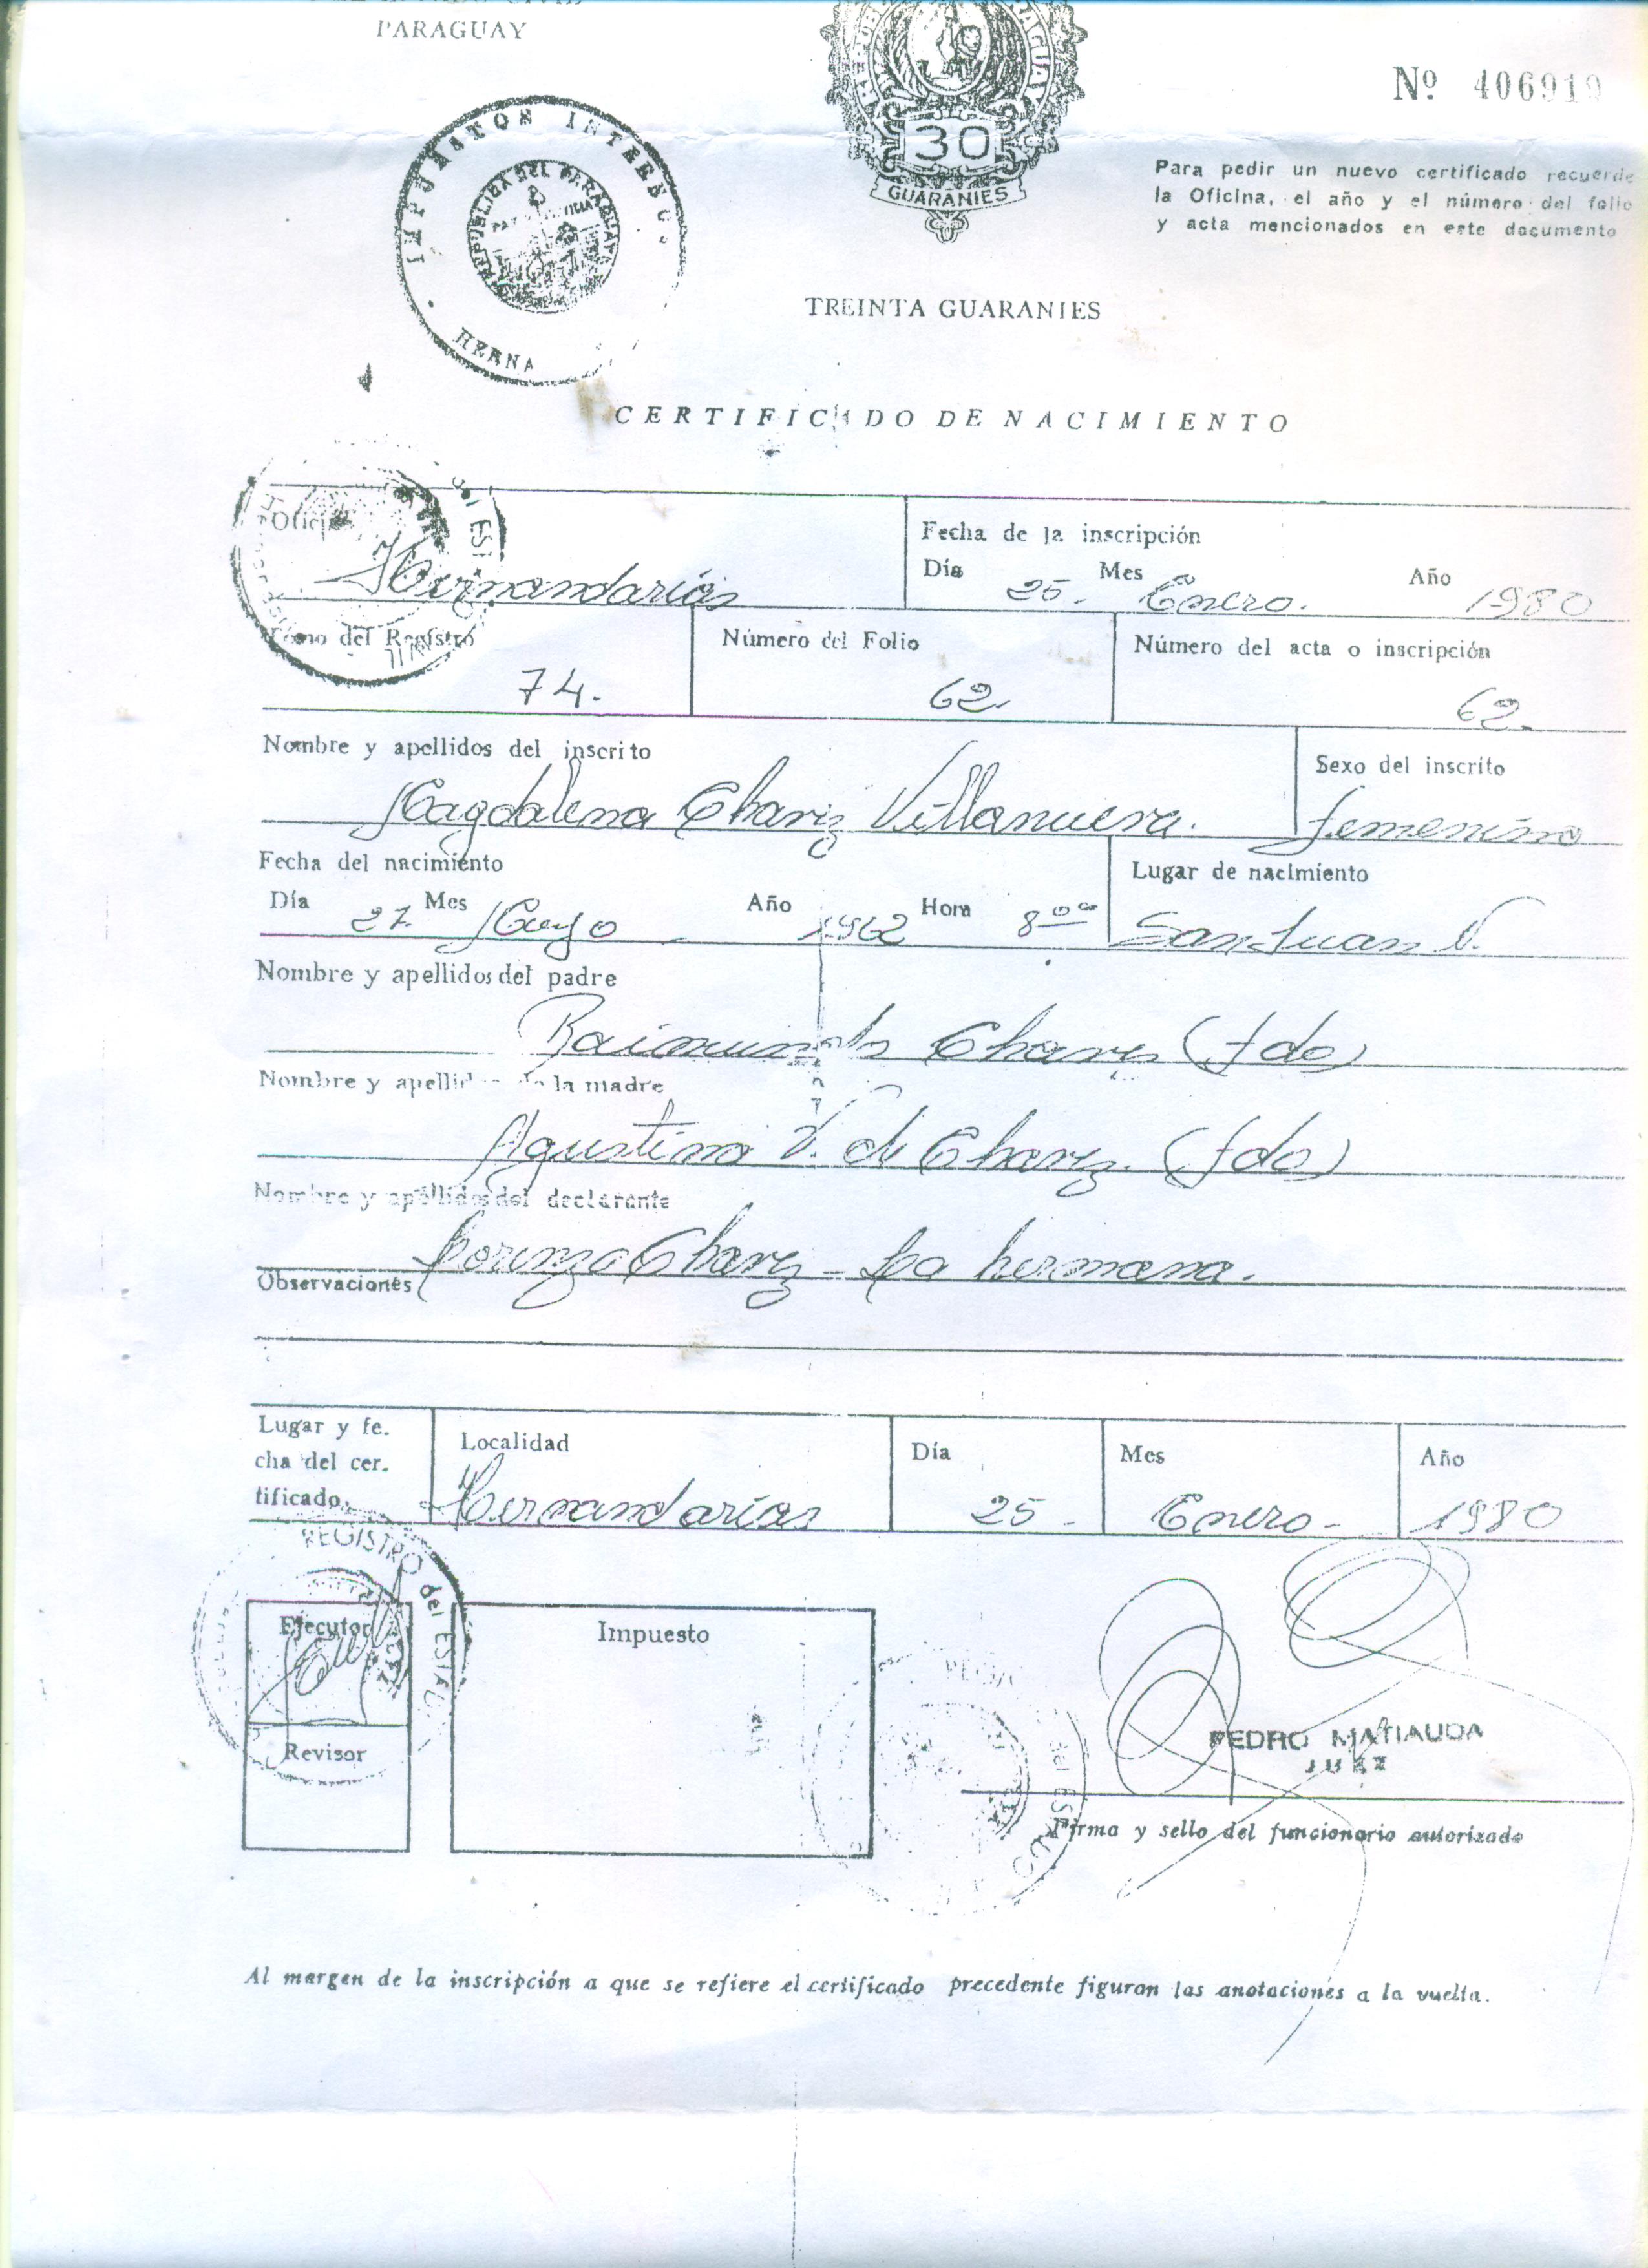 PARAGUAY
REPUBLICA DEL PARAGUAY
30
GUARANIES
Nº 406919
IMPUESTOS INTERNO
HERNA
REPUBLICA DEL PARAGUAY
Para pedir un nuevo certificado recuerde
la Oficina, el año y el número del folio
y acta mencionados en este documento
TREINTA GUARANIES
CERTIFICADO DE NACIMIENTO
Hernandarias
Fecha de la inscripción
Día 25. Mes Enero. Año 1980
Tomo del Registro
74.
Número del Folio
62.
Número del acta o inscripción
62.
Nombre y apellidos del inscrito
Magdalena Chavez Villanueva.
Sexo del inscrito
femenino
Fecha del nacimiento
Día 27. Mes Mayo Año 1962 Hora 8 ºº
Lugar de nacimiento
San Juan N.
Nombre y apellidos del padre
Raimundo Chavez (fdo)
Nombre y apellidos de la madre
Agustina V. de Chavez. (fdo)
Nombre y apellidos del declarante
Lorenza Chavez - La hermana.
Observaciones
Lugar y fe.
cha del cer.
tificado.
Localidad
Hernandarias
Día
25 -
Mes
Enero -
Año
1980
REGISTRO del ESTA
Ejecutor
Revisor
Impuesto
PEDRO MATIAUDA
JUEZ
Firma y sello del funcionario autorizado
Al margen de la inscripción a que se refiere el certificado precedente figuran las anotaciones a la vuelta.